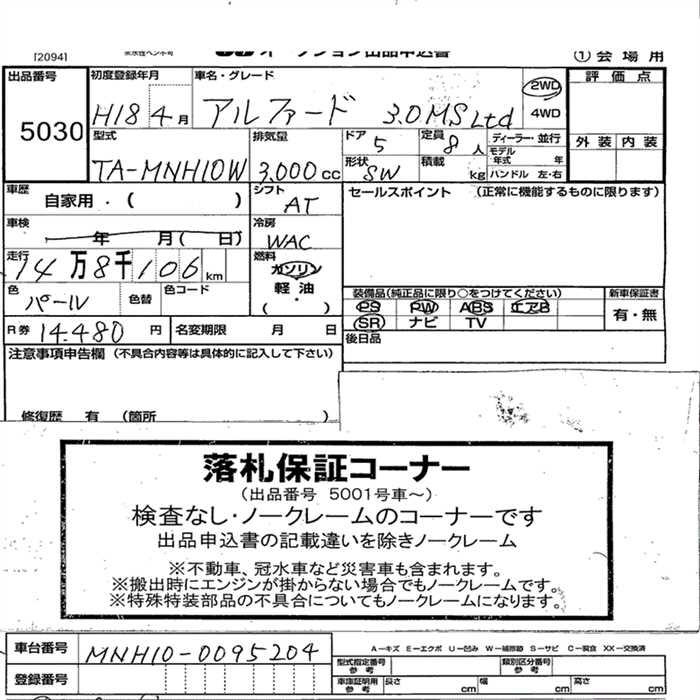 [2094]
オークション出品申込書
① 会場用
出品番号 5030
初度登録年月 H18 4月
車名・グレード アルファード 3.0MS Ltd
2WD
4WD
評価点
外装 内装
型式 TA-MNH10W
排気量 3,000cc
ドア 5
定員 8人
ディーラー・並行
モデル年式 年
形状 SW
積載 kg
ハンドル 左・右
車歴 自家用・( )
シフト AT
セールスポイント (正常に機能するものに限ります)
車検 年 月( 日)
冷房 WAC
走行 14万8千106km
燃料 ガソリン
軽油
( ・ )
色 パール
色替
色コード
装備品(純正品に限り○をつけてください)
新車保証書
PS PW ABS エアB
有・無
SR ナビ TV
R券 14.480円
名変期限 月 日
後日品
注意事項申告欄 (不具合内容等は具体的に記入して下さい)
修復歴 有 (箇所 )
落札保証コーナー
(出品番号 5001号車~)
検査なし・ノークレームのコーナーです
出品申込書の記載違いを除きノークレーム
※不動車、冠水車など災害車も含まれます。
※搬出時にエンジンが掛からない場合でもノークレームです。
※特殊特装部品の不具合についてもノークレームになります。
A-キズ E-エクボ U-凹み W-補修跡 S-サビ C-腐食 XX-交換済
車台番号 MNH10-0095204
型式指定番号 参考
類別区分番号 参考
登録番号
車庫証明用 参考
長さ cm
幅 cm
高さ cm